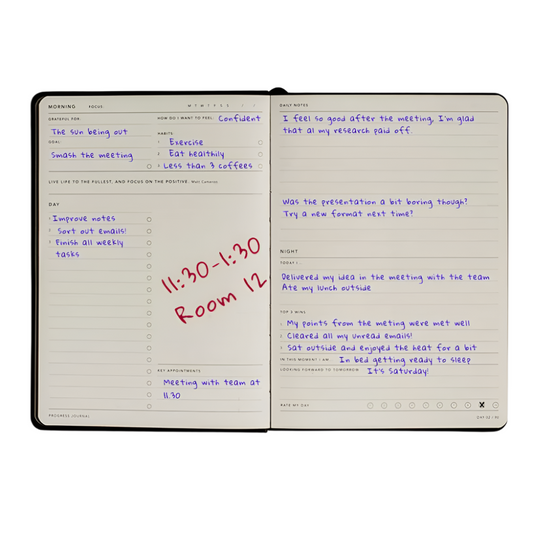 MORNING FOCUS: M T W T F S S
GRATEFUL FOR:
The sun being out
GOAL:
Smash the meeting
HOW DO I WANT TO FEEL: Confident
HABITS:
Exercise
Eat healthily
Less than 3 coffees
LIVE LIFE TO THE FULLEST, AND FOCUS ON THE POSITIVE. Matt Cameron
DAY
1 Improve notes
2 Sort out emails!
3 Finish all weekly
tasks
11:30-1:30
Room 12
KEY APPOINTMENTS
Meeting with team at
11.30
PROGRESS JOURNAL
DAILY NOTES
I feel so good after the meeting, I'm glad
that al my research paid off.
Was the presentation a bit boring though?
Try a new format next time?
NIGHT
TODAY I...
Delivered my idea in the meeting with the team
Ate my lunch outside
TOP 3 WINS
1 My points from the meting were met well
2 Cleared all my unread emails!
3 Sat outside and enjoyed the heat for a bit
IN THIS MOMENT I AM... In bed getting ready to sleep
LOOKING FORWARD TO TOMORROW It's Saturday!
RATE MY DAY